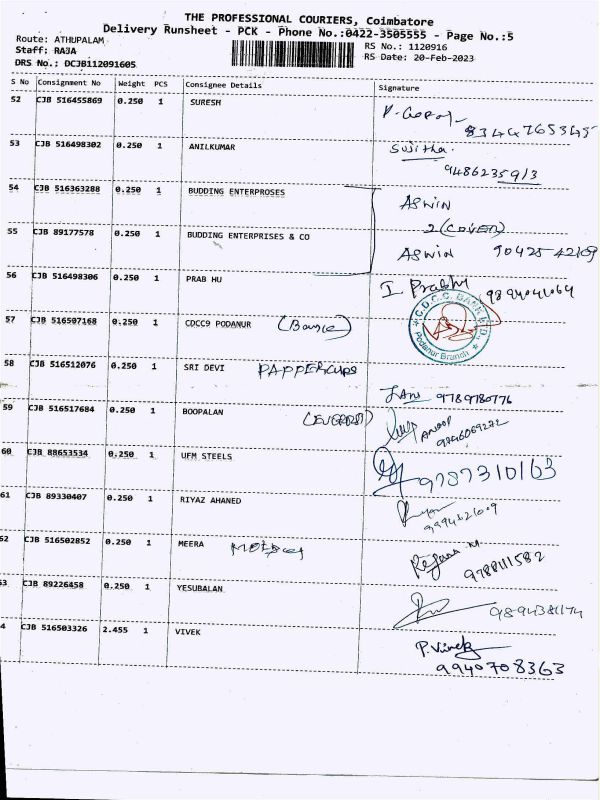 THE PROFESSIONAL COURIERS, Coimbatore
Delivery Runsheet - PCK - Phone No.:0422-3505555 - Page No.:5
Route: ATHUPALAM
Staff: RAJA
DRS No.: DCJB112091605
RS No.: 1120916
RS Date: 20-Feb-2023
S No Consignment No Weight PCS Consignee Details Signature
52 CJB 516455869 0.250 1 SURESH
8344765345
53 CJB 516498302 0.250 1 ANILKUMAR Sujitha.
9486235913
54 CJB 516363288 0.250 1 BUDDING ENTERPROSES ASWIN
2 (COVER)
55 CJB 89177578 0.250 1 BUDDING ENTERPRISES & CO ASWIN 90425 42109
56 CJB 516498306 0.250 1 PRAB HU I Prabhu 9894041064
57 CJB 516507168 0.250 1 CDCC9 PODANUR C.D.C.C. BANK LTD.
Podanur Branch
58 CJB 516512076 0.250 1 SRI DEVI PAPPERCUPS
9789780776
59 CJB 516517684 0.250 1 BOOPALAN ANOOP
60 CJB 88653534 0.250 1 UFM STEELS 9787310163
61 CJB 89330407 0.250 1 RIYAZ AHANED
62 CJB 516502852 0.250 1 MEERA
53 CJB 89226458 0.250 1 YESUBALAN
4 CJB 516503326 2.455 1 VIVEK P. Vivek
9940708363